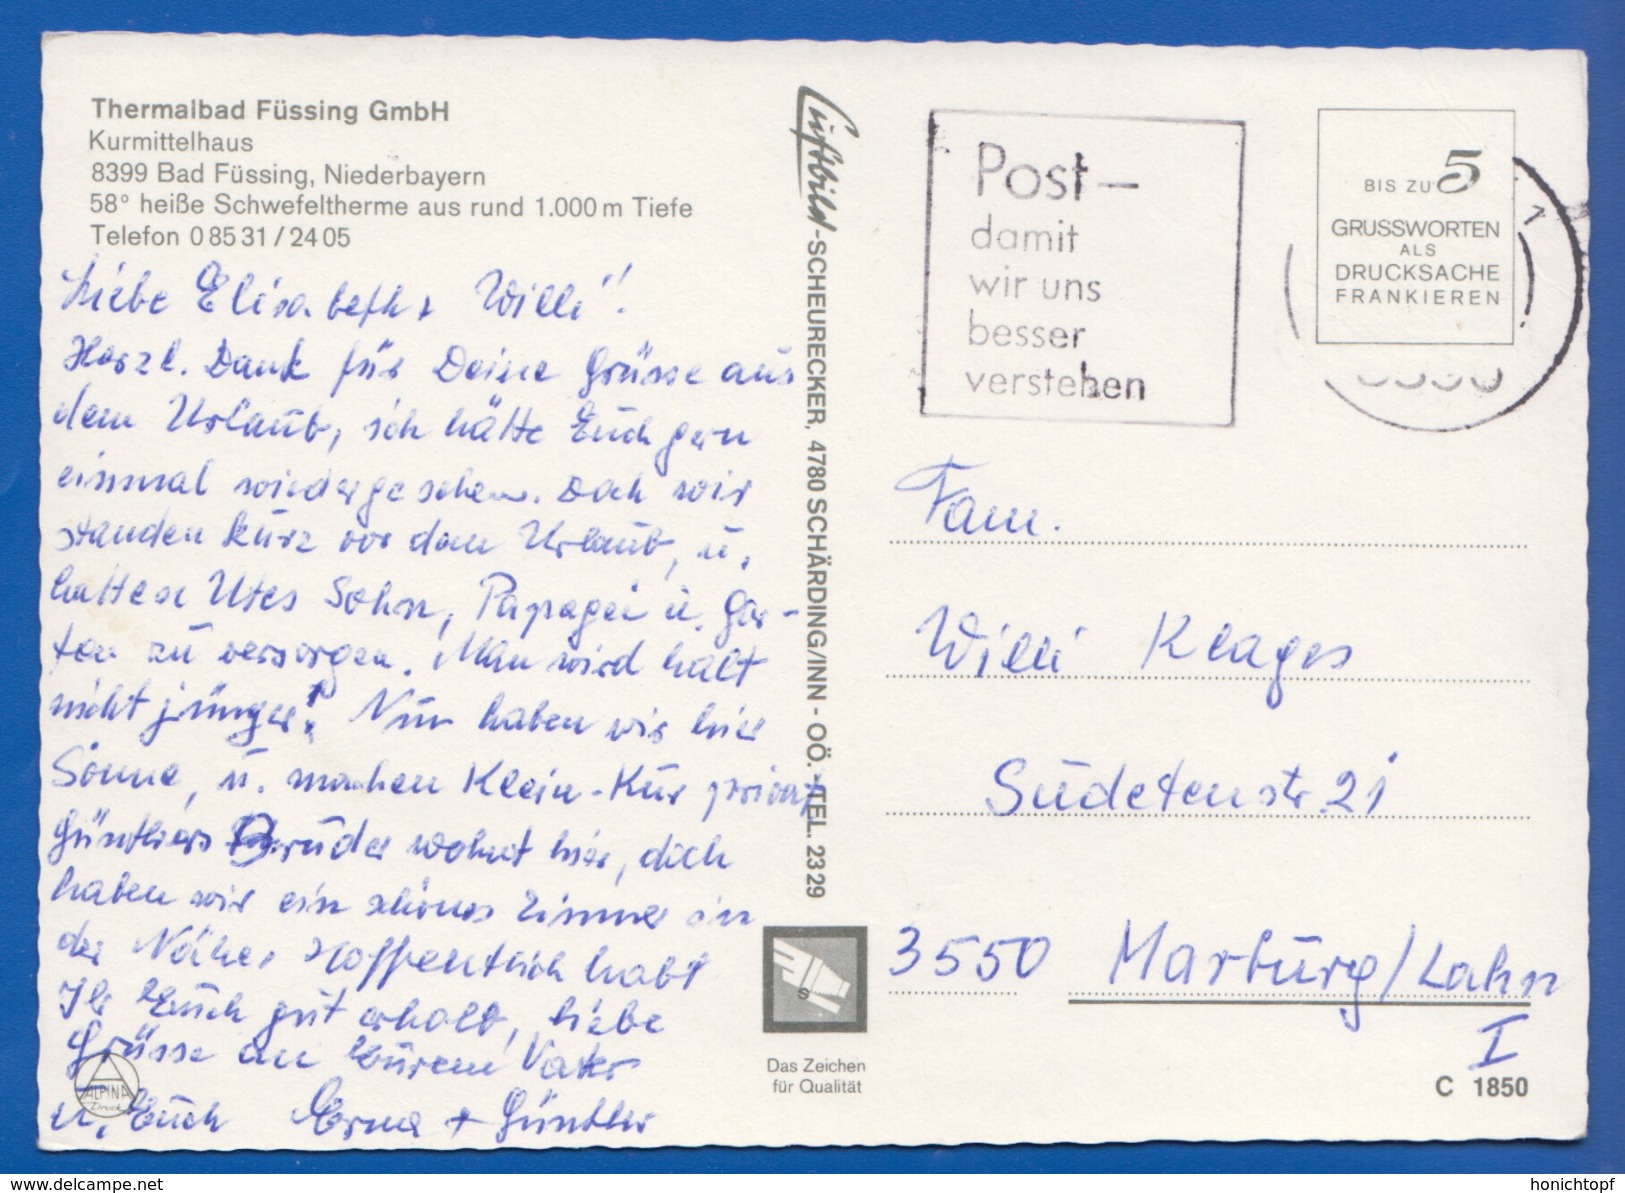 Thermalbad Füssing GmbH
Kurmittelhaus
8399 Bad Füssing, Niederbayern
58° heiße Schwefeltherme aus rund 1.000 m Tiefe
Telefon 0 85 31 / 24 05
Liebe Elisabeth + Willi!
Herzl. Dank für Deine Grüsse aus
dem Urlaub, ich hätte Euch gern
einmal wiedergesehen. Doch wir
standen kurz vor dem Urlaub, u.
hatten Utes Sohn, Papagei u. Gar-
ten zu versorgen. Man wird halt
nicht jünger! Nun haben wir hier
Sonne, u. machen Klein-Kur privat,
Günthers Bruder wohnt hier, doch
haben wir ein schönes Zimmer in
der Nähe. Hoffentlich habt
Ihr Euch gut erholt, liebe
Grüsse an Eurem Vater
u. Euch Erna + Günther
ALPINA
Druck
Luftbild-SCHEURECKER, 4780 SCHÄRDING/INN - OÖ. - TEL. 23 29
Das Zeichen
für Qualität
Post-
damit
wir uns
besser
verstehen
BIS ZU 5
GRUSSWORTEN
ALS
DRUCKSACHE
FRANKIEREN
Fam.
Willi Klages
Sudetenstr. 21
3550 Marburg/Lahn
I
C 1850
www.delcampe.net
honichtopf